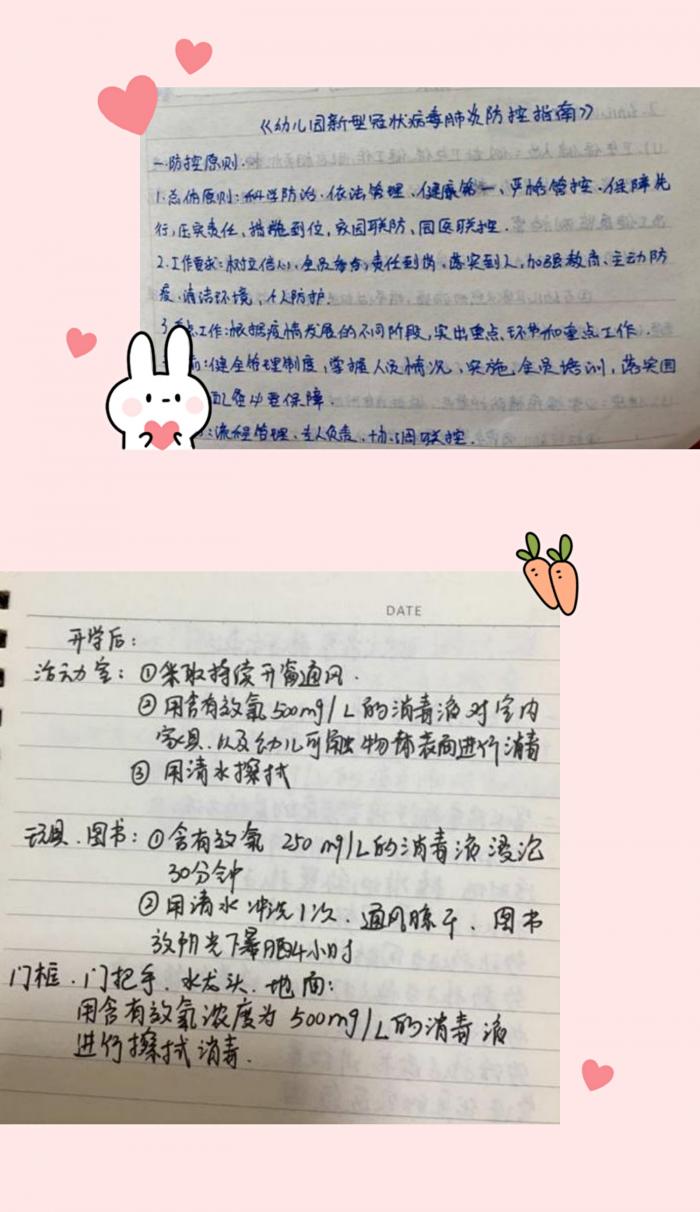 《幼儿园新型冠状病毒肺炎防控指南》
一.防控原则.
1.总体原则:科学防治.依法管理.健康第一、严格管控.保障先
行,压实责任、措施到位,家园联防、园医联控.
2.工作要求:树立信心,全员参与,责任到岗,落实到人,加强教育、主动防
疫.清洁环境,个人防护.
工作:根据疫情发展的不同阶段,突出重点.环节和重点工作.
:健全管理制度,掌握人员情况,实施.全员培训,落实园
配全必要保障.
:流程管理.专人负责,协调联控.
DATE
开学后:
活动室:①采取持续开窗通风.
②用含有效氯500mg/L的消毒液对室内
家具.以及幼儿可触物体表面进行消毒
③ 用清水擦拭
玩具.图书:①含有效氯 250mg/L的消毒液浸泡
30分钟
②用清水冲洗1次.通风晾干.图书
放阳光下暴晒4小时
门框.门把手.水龙头.地面:
用含有效氯浓度为 500mg/L的消毒液
进行擦拭消毒.